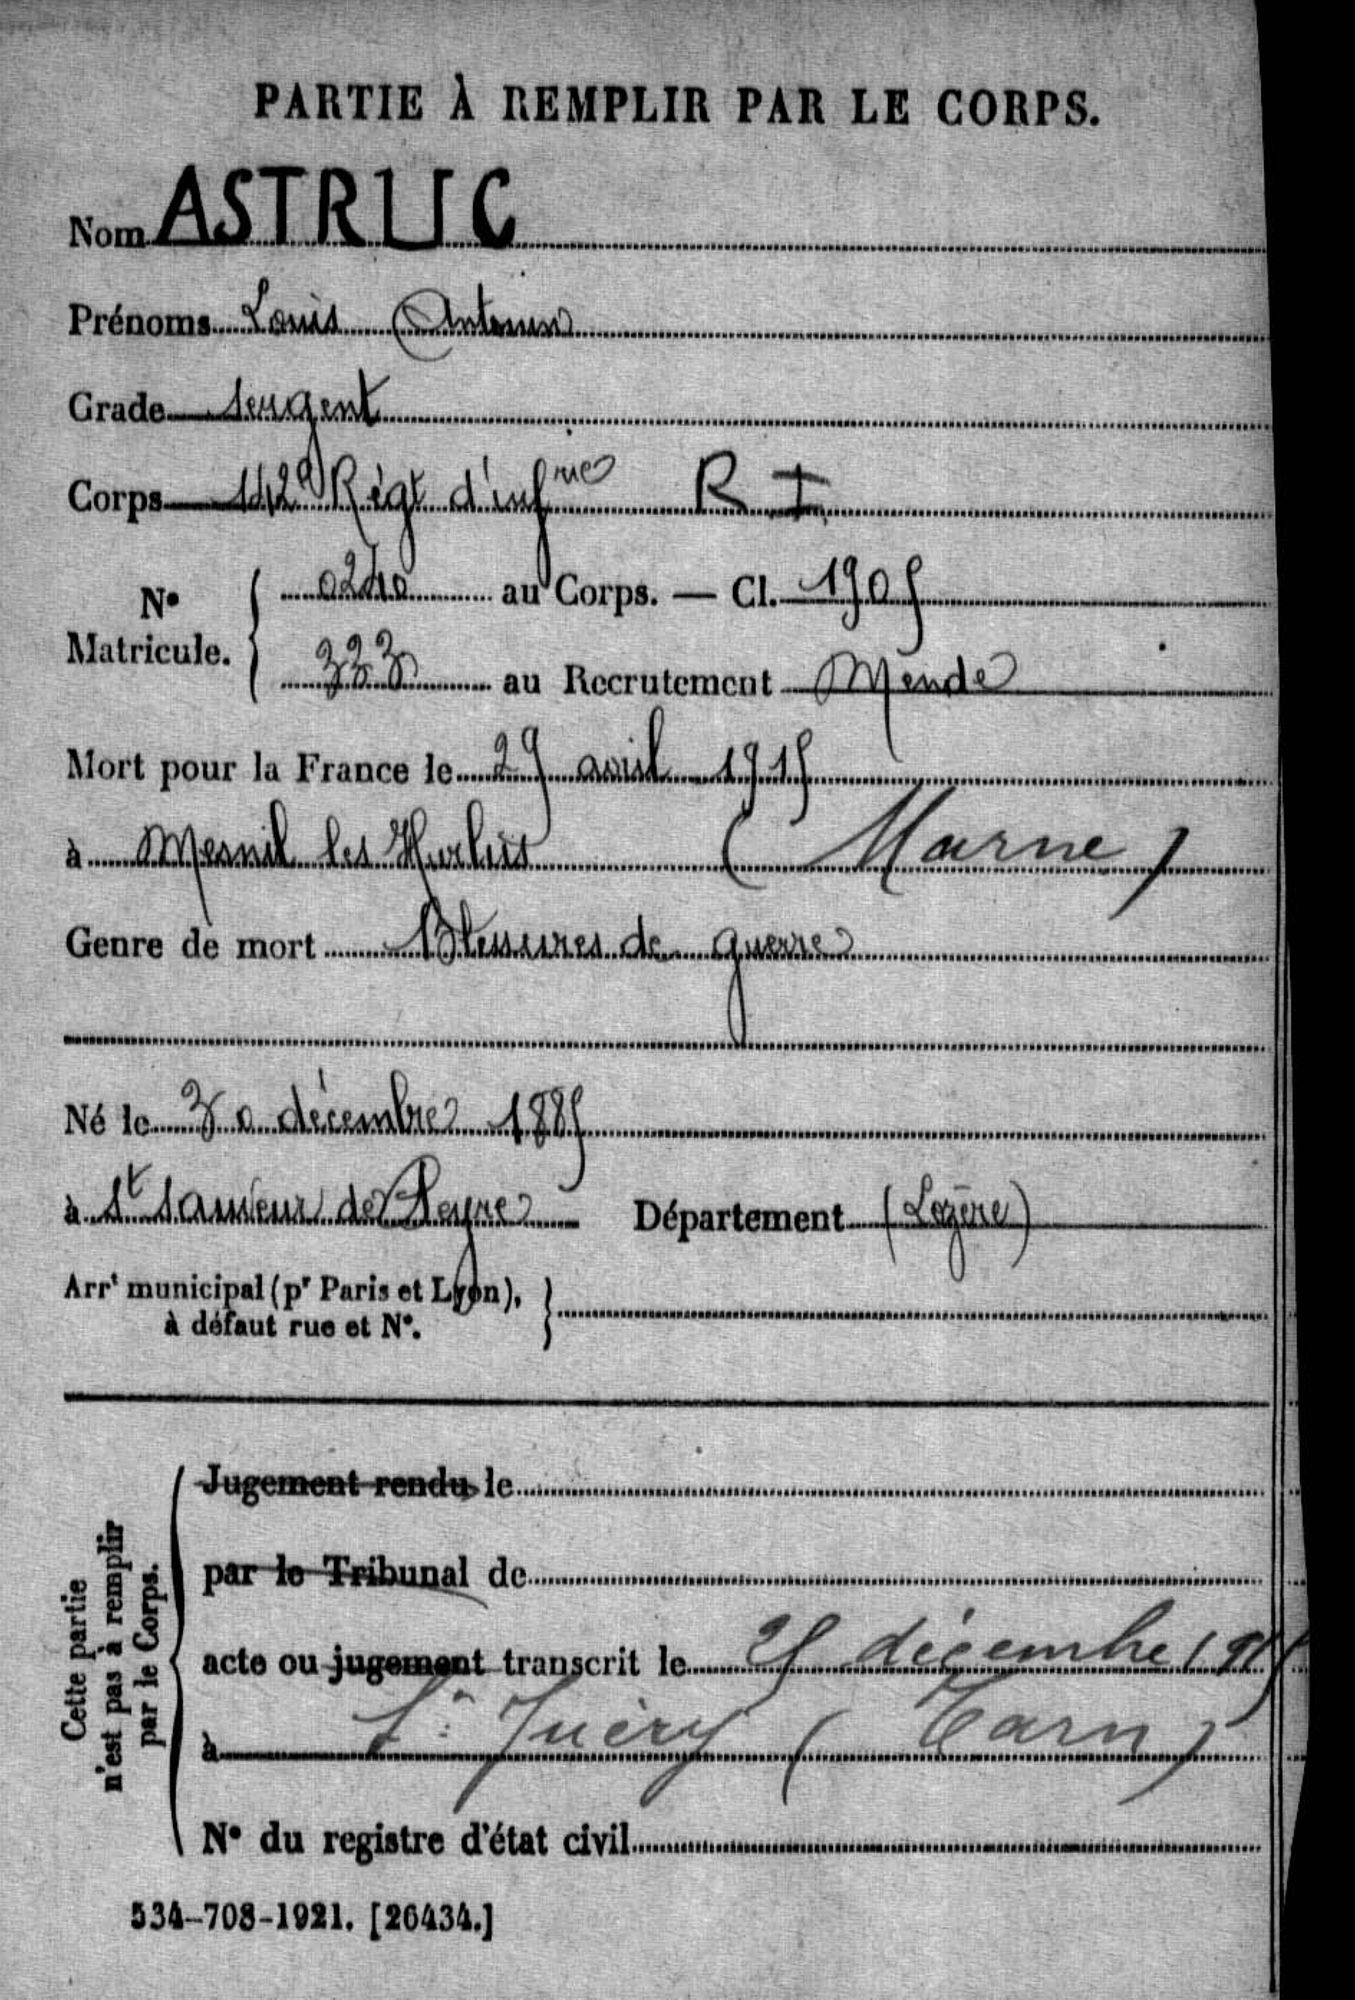 PARTIE À REMPLIR PAR LE CORPS.
Nom ASTRUC
Prénoms Louis Antonin
Grade sergent
Corps 142e Régt d'infrie R I
No Matricule. 0240 au Corps. — Cl. 1905
333 au Recrutement Mende
Mort pour la France le 29 avril 1915
à Mesnil les Hurlus (Marne)
Genre de mort Blessures de guerre
Né le 30 décembre 1885
à St Sauveur de Peyre Département (Lozère)
Arrt municipal (pr Paris et Lyon),
à défaut rue et No.
Cette partie n'est pas à remplir par le Corps.
Jugement rendu le
par le Tribunal de
acte ou jugement transcrit le 25 décembre 1915
à St Juéry (Tarn)
No du registre d'état civil
534-708-1921. [26434.]